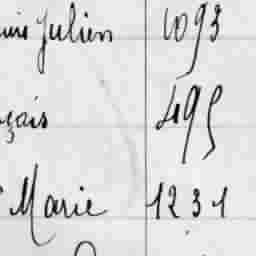 Julien 1093
çais 495
Marie 1231